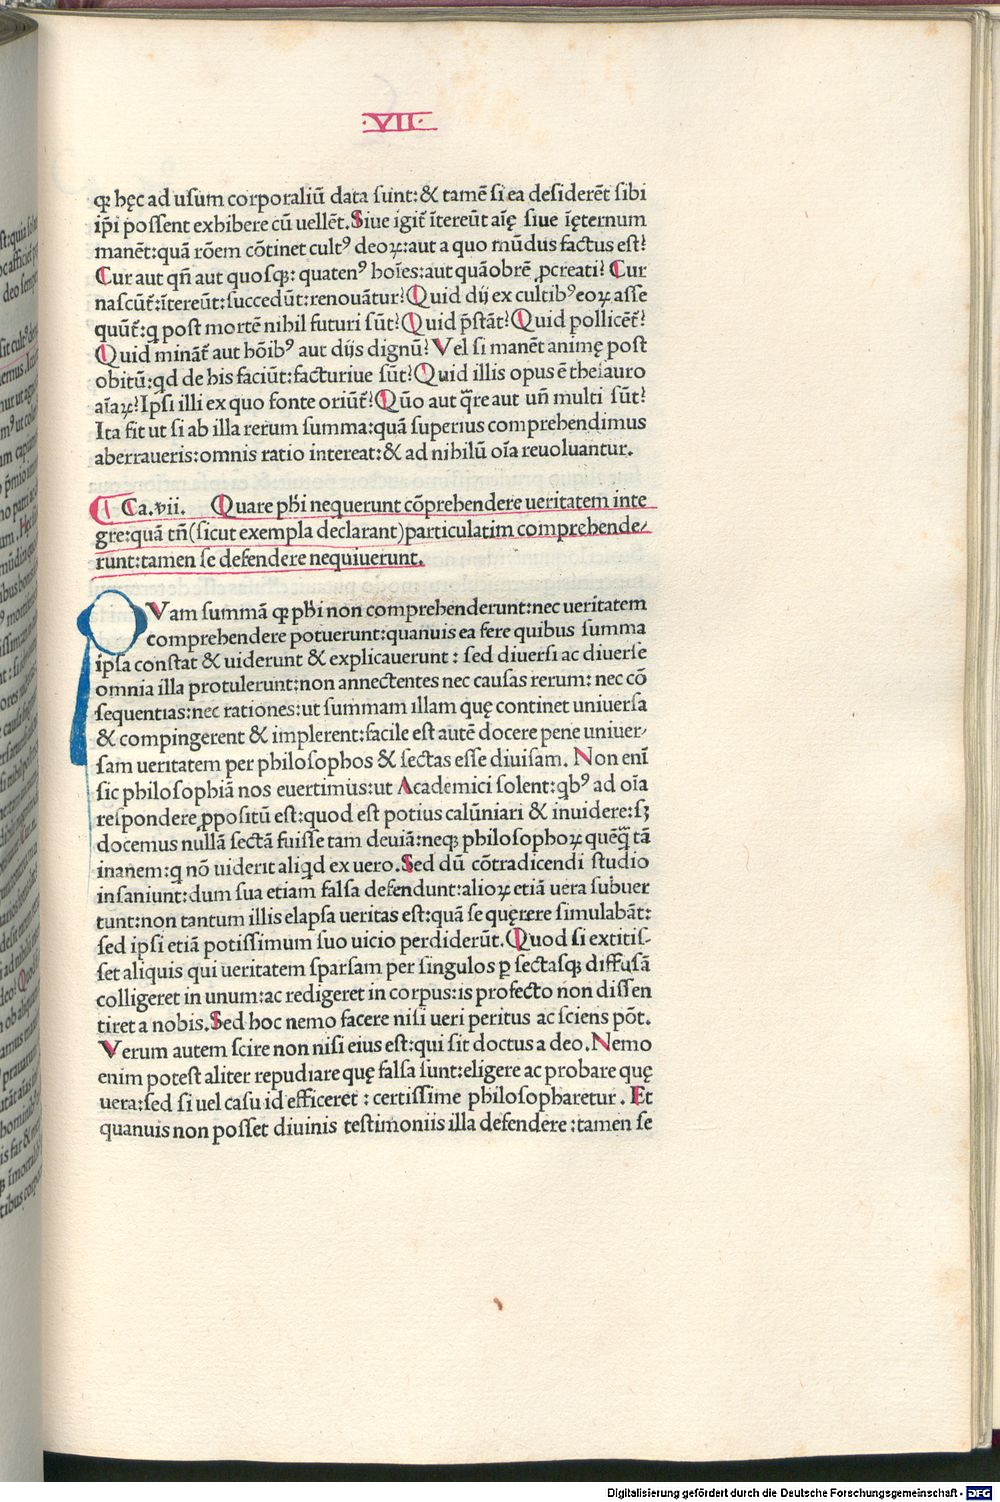 ·VII·
ꝙ hęc ad uſum corporaliū data ſunt:& tamē ſi ea deſiderēt ſibi
ip̄i poſſent exhibere cū uellēt.Siue igit̄ ītereūt aīę ſiue īęternum
manēt:quā rōem cōtinet cultꝰ deoꝝ:aut a quo mūdus factus eſt?
Cur aut qn̄ aut quoſqꝫ: quatenꝰ hoīes:aut quāobrē ꝓcreati? Cur
naſcūt̄:ītereūt:ſuccedūt:renouātur?Quid dij ex cultibꝰ eoꝝ aſſe
quūt̄:q poſt mortē nihil futuri ſūt?Quid p̄ſtāt?Quid pollicēt̄?
Quid mināt̄ aut hōibꝰ aut dijs dignū?Vel ſi manēt animę poſt
obitū:qd de his faciūt:facturiue ſūt?Quid illis opus ē theſauro
aīaꝝ?Ipſi illi ex quo fonte oriūt̄?Qūo aut q̄re aut un̄ multi ſūt?
Ita fit ut ſi ab illa rerum ſumma:quā ſuperius comprehendimus
aberraueris:omnis ratio intereat:& ad nihilū oīa reuoluantur.
Ca.vii. Quare phi nequerunt cōprehendere ueritatem inte
gre:quā tn̄(ſicut exempla declarant)particulatim comprehende/
runt:tamen ſe defendere nequiuerunt.
QVam ſummā ꝙ phi non comprehenderunt:nec ueritatem
comprehendere potuerunt:quanuis ea fere quibus ſumma
ipſa conſtat & uiderunt & explicauerunt : ſed diuerſi ac diuerſe
omnia illa protulerunt:non annectentes nec cauſas rerum: nec cō
ſequentias:nec rationes:ut ſummam illam quę continet uniuerſa
& compingerent & implerent:facile eſt autē docere pene uniuer/
ſam ueritatem per philoſophos & ſectas eſſe diuiſam. Non enī
ſic philoſophiā nos euertimus:ut Academici ſolent:qbꝰ ad oīa
reſpondere ꝓpoſitū eſt:quod eſt potius calūniari & inuidere:ſꝫ
docemus nullā ſectā fuiſſe tam deuiā:neqꝫ philoſophoꝝ quēq̄ tā
inanem:q nō uiderit aliqd ex uero.Sed dū cōtradicendi ſtudio
inſaniunt:dum ſua etiam falſa defendunt:alioꝝ etiā uera ſubuer
tunt:non tantum illis elapſa ueritas eſt:quā ſe quęrere ſimulabāt:
ſed ipſi etiā potiſſimum ſuo uicio perdiderūt.Quod ſi extitiſ-
ſet aliquis qui ueritatem ſparſam per ſingulos ꝑ ſectaſqꝫ diffuſā
colligeret in unum:ac redigeret in corpus:is profecto non diſſen
tiret a nobis.Sed hoc nemo facere niſi ueri peritus ac ſciens pōt.
Verum autem ſcire non niſi eius eſt:qui ſit doctus a deo.Nemo
enim poteſt aliter repudiare quę falſa ſunt:eligere ac probare quę
uera:ſed ſi uel caſu id efficeret : certiſſime philoſopharetur . Et
quanuis non poſſet diuinis teſtimoniis illa defendere :tamen ſe
Digitalisierung gefördert durch die Deutsche Forschungsgemeinschaft - DFG